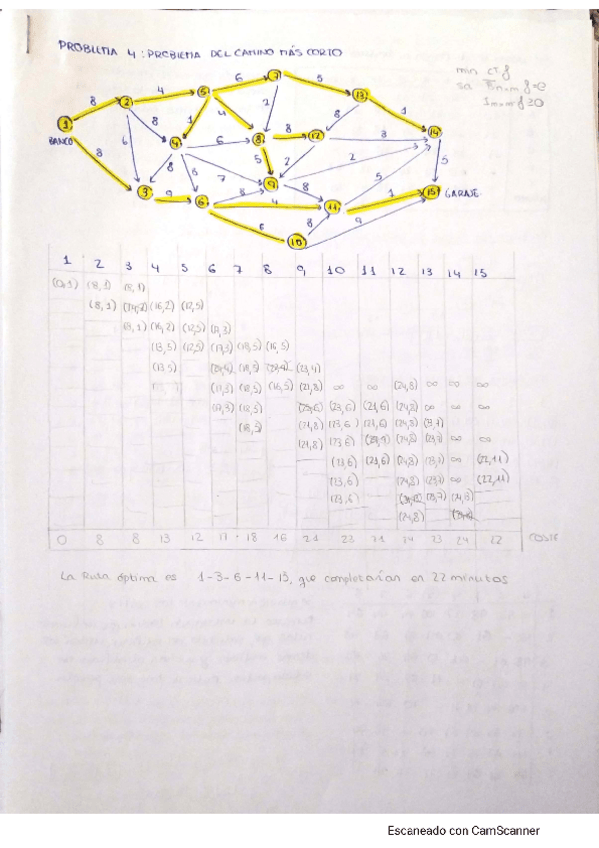 PROBLEMA 4: PROBLEMA DEL CAMINO MÁS CORTO
min cᵀf
≥0
8 4 6 5 1
8 6 8 1 4 2 8 3 5
1 2 3 4 5 6 7 8 9 10 11 12 13 14 15
BANCO
GARAJE
1 2 3 4 5 6 7 8 9 10 11 12 13 14 15
(0,1) (8,1) (8,1)
(8,1) (16,2) (12,5)
(8,1) (16,2) (12,5) (17,3)
(13,5) (12,5) (17,3) (18,5) (16,5)
(13,5) (18,5) (23,4)
(17,3) (18,5) (16,5) (21,8) ∞ ∞ (24,8) ∞ ∞ ∞
(17,3) (18,5) (23,6) (21,6) (24,8) ∞ ∞ ∞
(18,5) (21,8) (23,6) (21,6) (24,8) (23,7)
(21,8) (23,6) (24,8) (23,7) ∞ ∞
(23,6) (21,6) (24,8) (23,7) ∞ (22,11)
(23,6) (24,8) (23,7) ∞ (22,11)
(23,6) (23,7)
(24,8)
0 8 8 13 12 17 18 16 21 23 21 24 23 24 22 COSTE
La Ruta óptima es 1-3-6-11-15, que completarían en 22 minutos
Escaneado con CamScanner